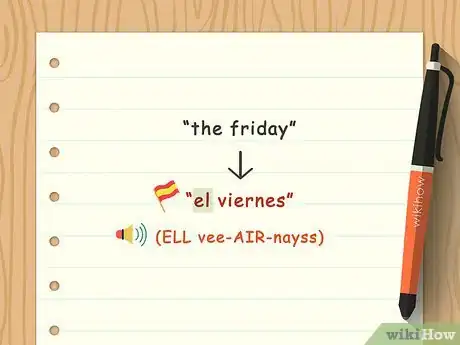 "the friday"
"el viernes"
(ELL vee-AIR-nayss)
wikihow
wikiHow